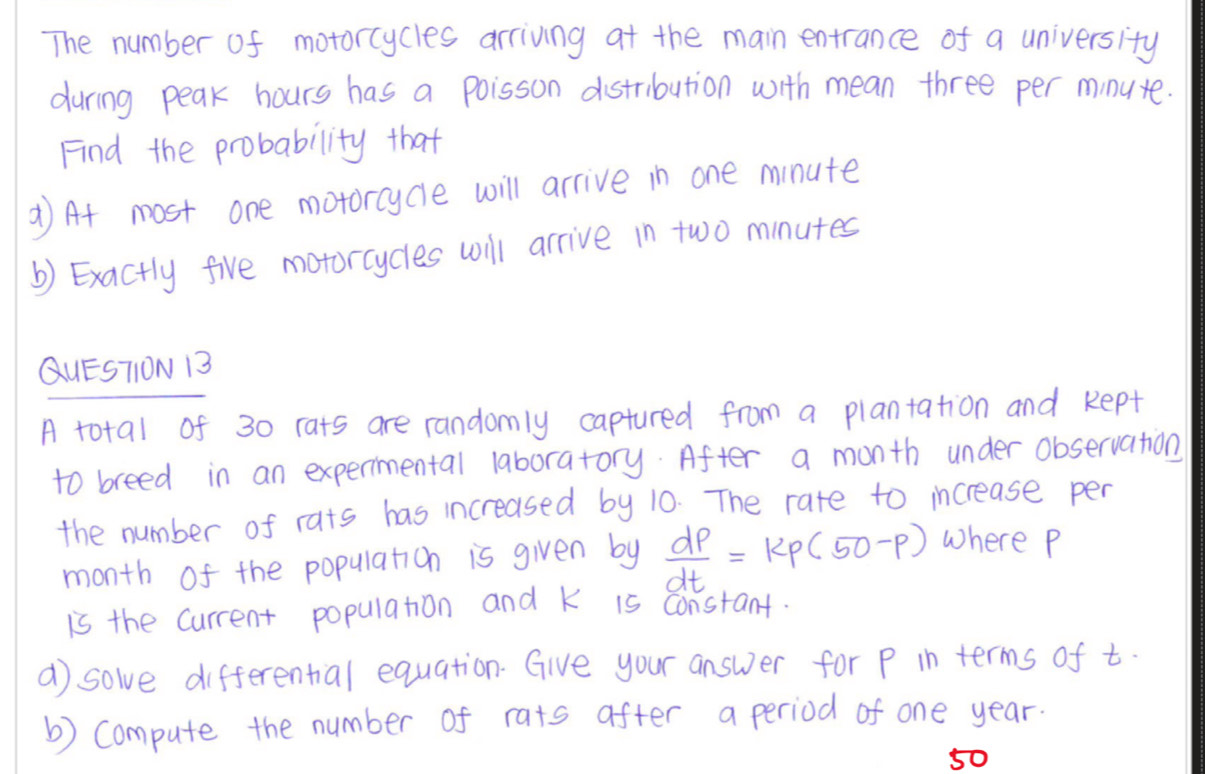 The number of motorcycles arriving at the main entrance of a university
during peak hours has a Poisson distribution with mean three per minute.
Find the probability that
a) At most one motorcycle will arrive in one minute
b) Exactly five motorcycles will arrive in two minutes
QUESTION 13
A total of 30 rats are randomly captured from a plantation and kept
to breed in an experimental laboratory. After a month under observation
the number of rats has increased by 10. The rate to increase per
month of the population is given by dP/dt = kp(50-P) where P
is the current population and k is constant.
a) solve differential equation. Give your answer for P in terms of t.
b) Compute the number of rats after a period of one year.
50